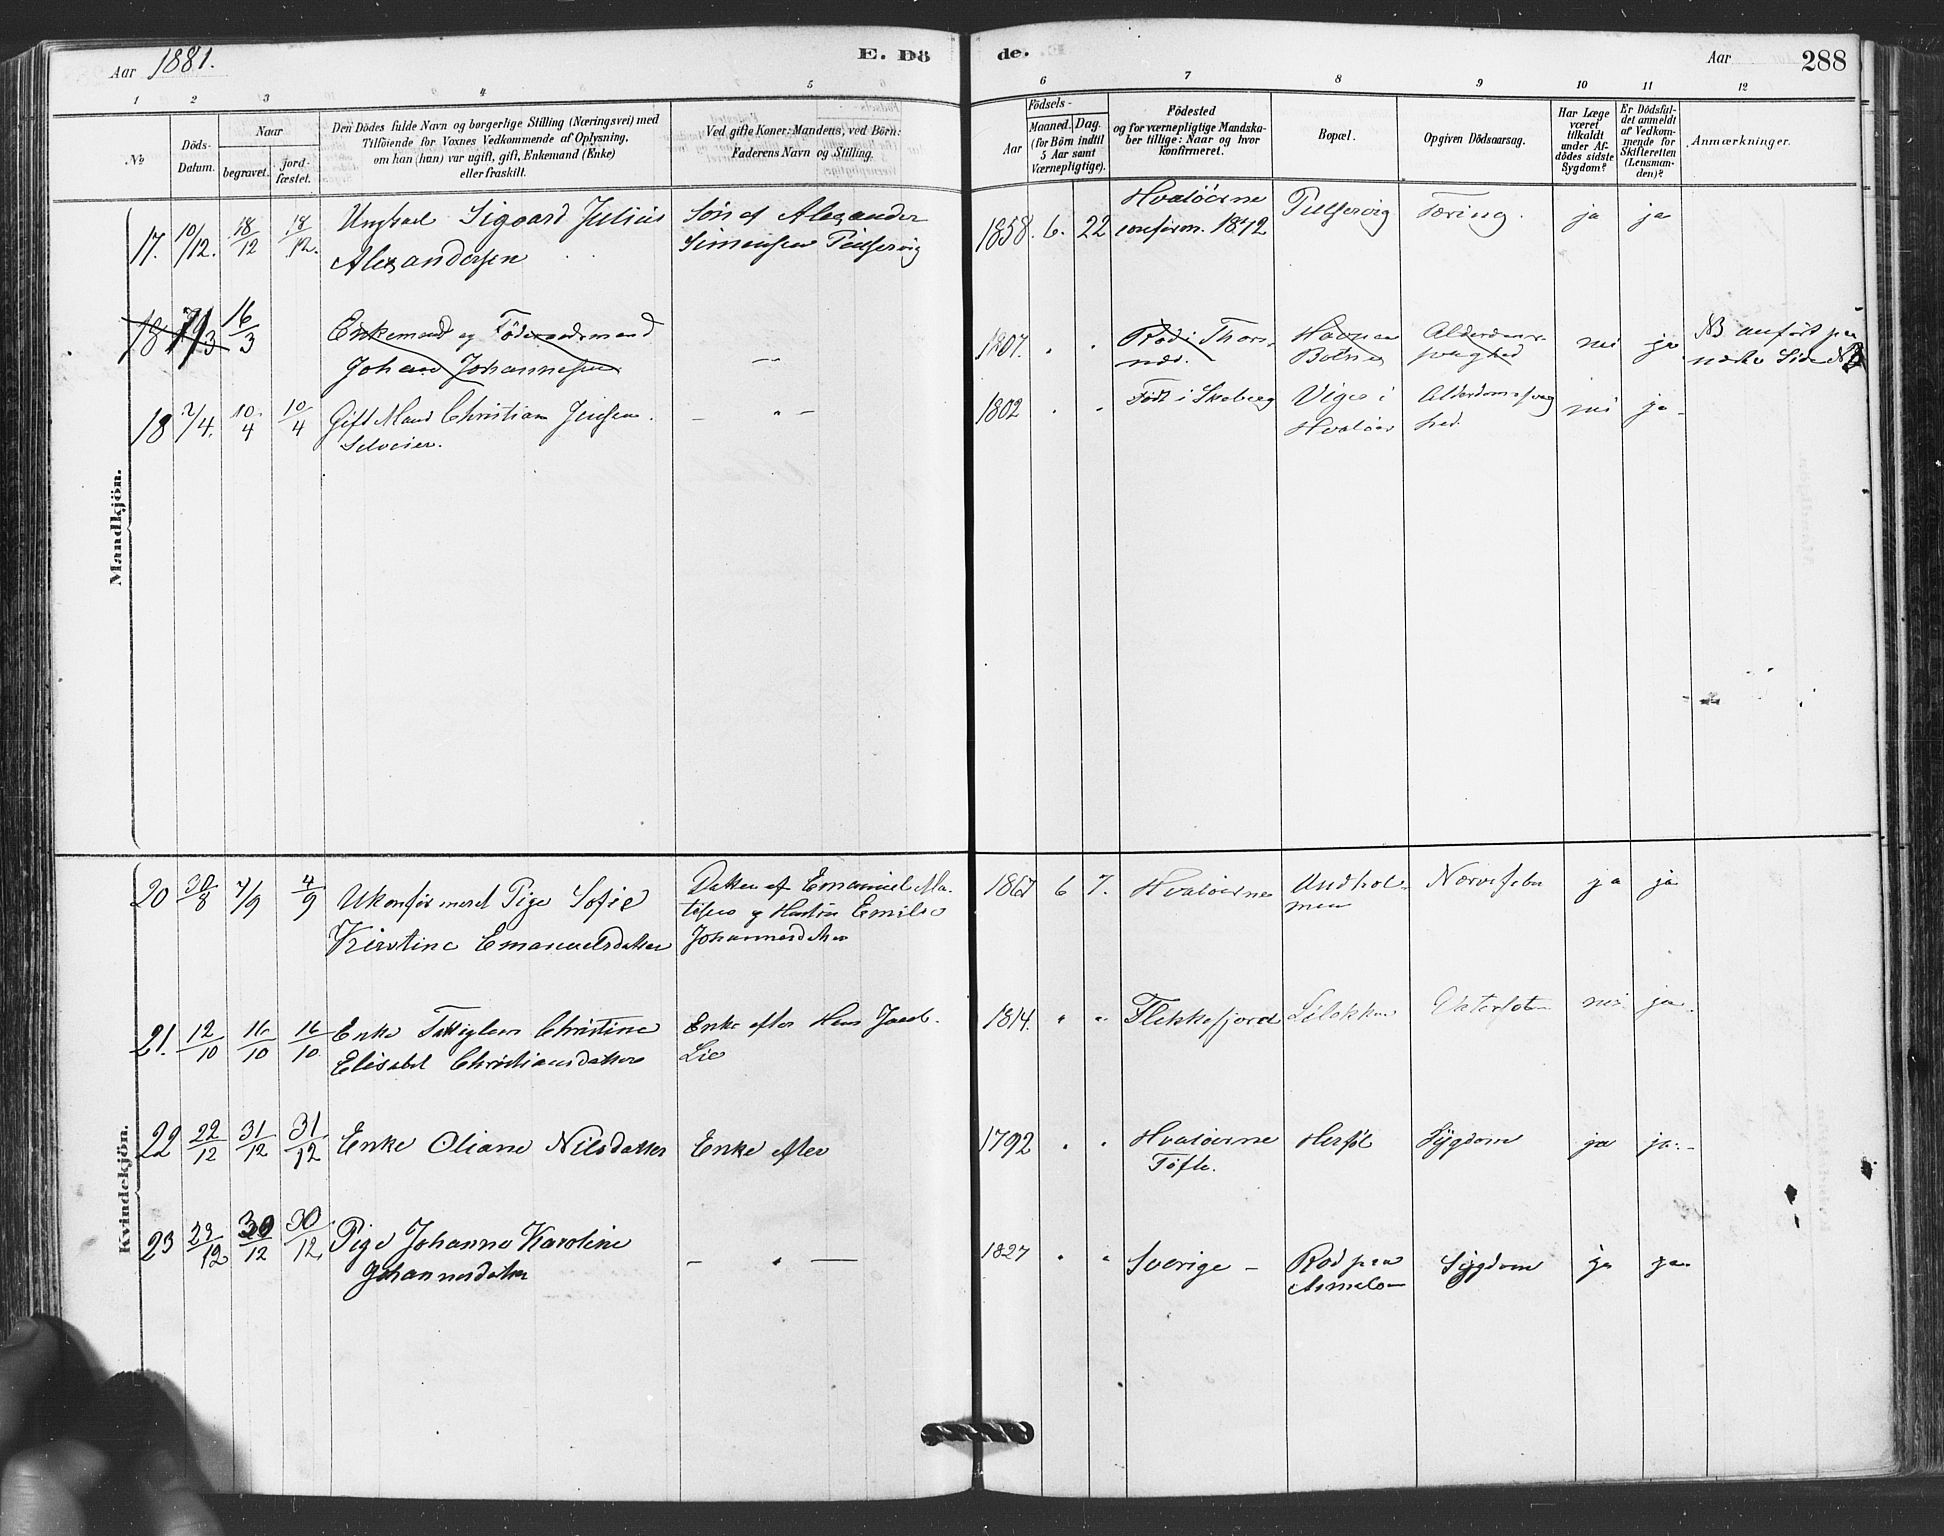 Aar 1881. E. Dö de. Aar 288
1 2 3 4 5 6 7 8 9 10 11 12
No
Döds-Datum.
Naar
begravet.
jord-fæstet.
Den Dödes fulde Navn og borgerlige Stilling (Næringsvei) med
Tilföiende for Voxnes Vedkommende af Oplysning,
om han (hun) var ugift, gift, Enkemand (Enke)
eller fraskilt.
Ved gifte Koner: Mandens, ved Börn:
Faderens Navn og Stilling.
Födsels-
Aar
Maaned. Dag.
(for Börn indtil
5 Aar samt
Værnepligtige).
Födested
og for værnepligtige Mandska-
ber tillige: Naar og hvor
konfirmeret.
Bopæl.
Opgiven Dödsaarsag.
Har Læge
været
tilkaldt
under Af-
dödes sidste
Sygdom?
Er Dödsfal-
det anmeldt
af Vedkom-
mende for
Skifteretten
(Lensman-
den)?
Anmærkninger.
Mandkjön.
17. 10/12. 18/12 18/12. Ungkarl Sigvard Julius Søn af Alexander 1858. 6. 22 Hvaløerne Tæring. ja ja
Alexandersen Simensen confirm. 1872
18 7/3 16/3 Enkemand og Föderaadsmand 1807. " " Rød i Thors- Alderdoms- nei ja NB anført paa
Johan Johannesen -"- næs. svaghed næste Side
18 7/4. 10/4 10/4 Gift Mand Christian Jensen. - " - 1802 " " Født i Skeberg Viger i Alderdomssvag nei ja-
Selveier. Hvaløer hed.
Kvindekjön.
20 30/8 4/9 4/9 Ukonfirmeret Pige Sofie Datter af Emanuel Ma- 1867 6 7. Hvaløerne Nervefeber ja ja
Kirstine Emanuelsdatter og Hustru Emilie
Johannesdatter
21. 12/10 16/10 16/10 Enke Christine Enke efter Jacob 1814. " " Flekkefjord nei ja
Elisabet Christiansdatter Lie
22 22/12 31/12 31/12 Enke Oliane Nilsdatter Enke efter 1792 " " Hvaløerne Herføl Sygdom ja ja.-
Tøfte.
23 23/12 30/12 30/12 Pige Johanne Karoline - " - 1827 " " Sverige - Rød paa Sygdom ja ja
Johannesdatter Asmalø